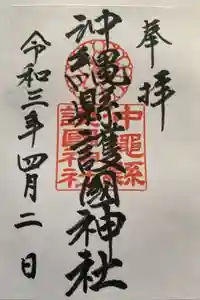 奉拝
沖縄縣護國神社
令和三年四月二日
沖縄縣
護国神社